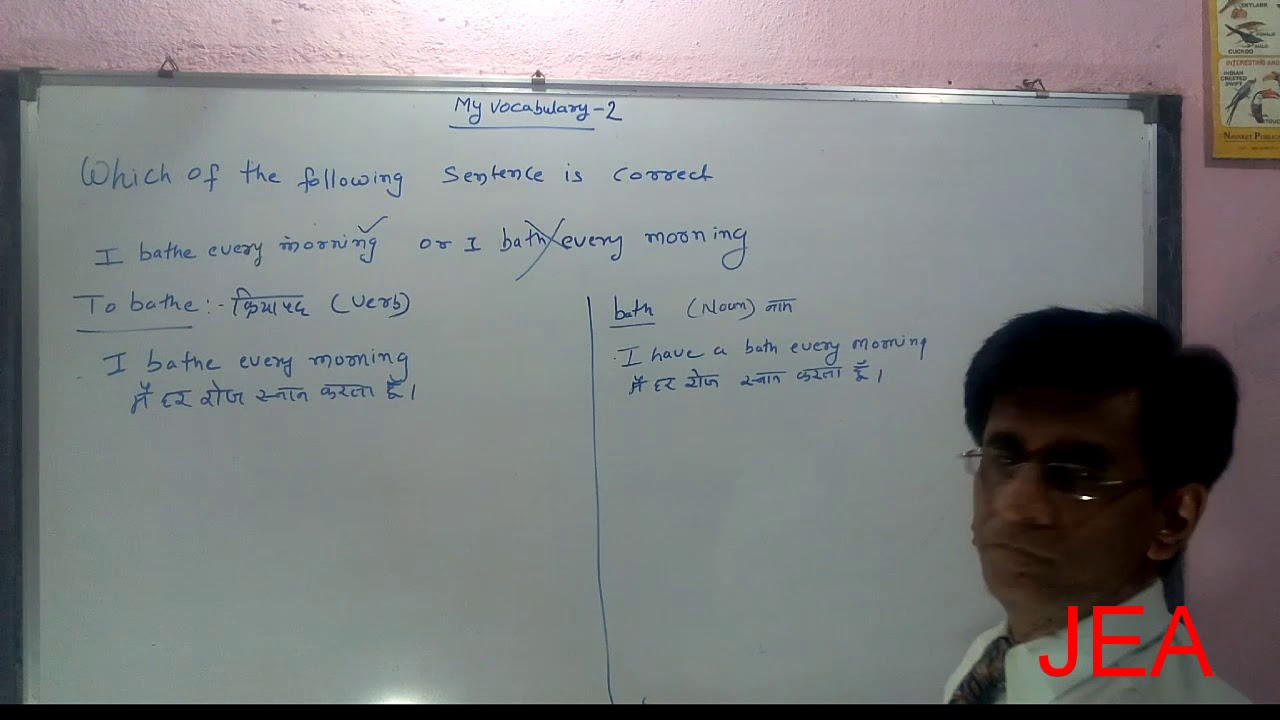 My vocabulary-2
Which of the following sentence is correct
I bathe every morning ✓ or I bath every morning
To bathe :- क्रियापद (verb)
I bathe every morning
मैं हर रोज स्नान करता हूँ।
bath (Noun) नाम
I have a bath every morning
मैं हर रोज स्नान करता हूँ।
SKYLARK
CUCKOO
INTERESTING AND
INDIAN CRESTED SWIFT
JEA